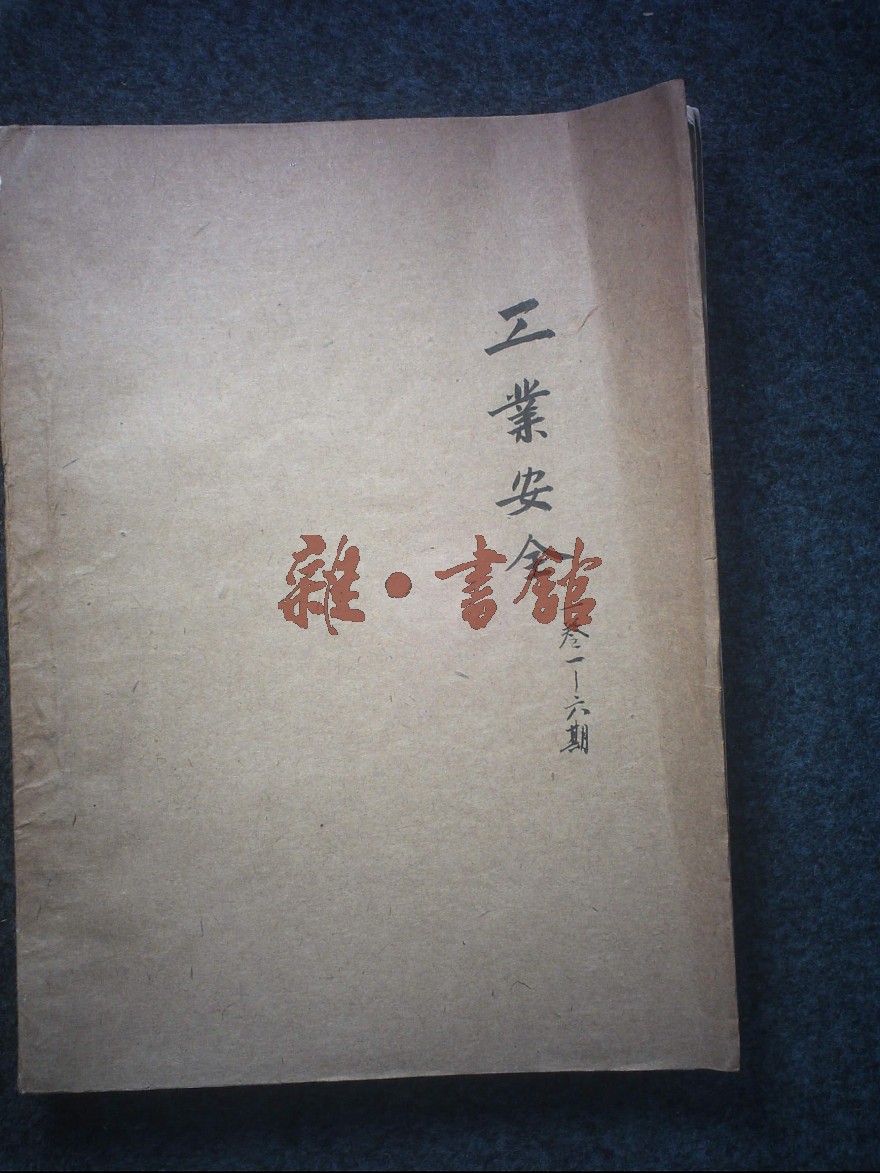 工業安全
一卷一—六期
雜·書館